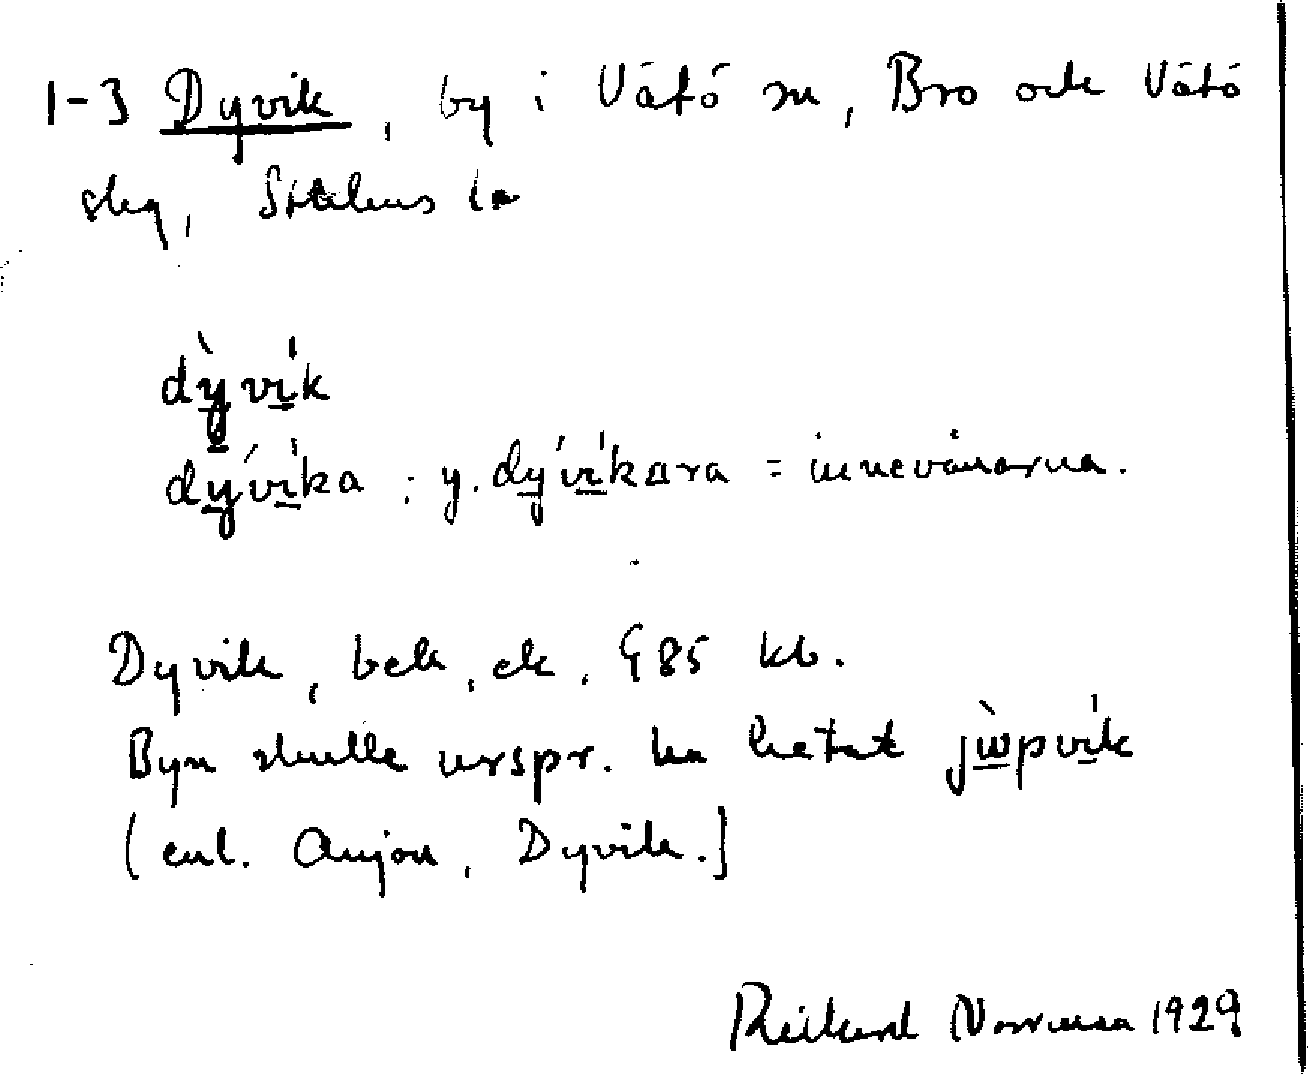 1-3 Dyvik, by i Vätö sn, Bro och Vätö
skg, Sthlms la
dỳvi̍k
dývi̍ka : y. dývi̍kara = innevånarna.
Dyvik, bek, ek, § 85 kb.
Byn skulle urspr. ha hetat jὼpvi̍k
(enl. Anjou, Dyvik.]
Rickard Norrman 1929